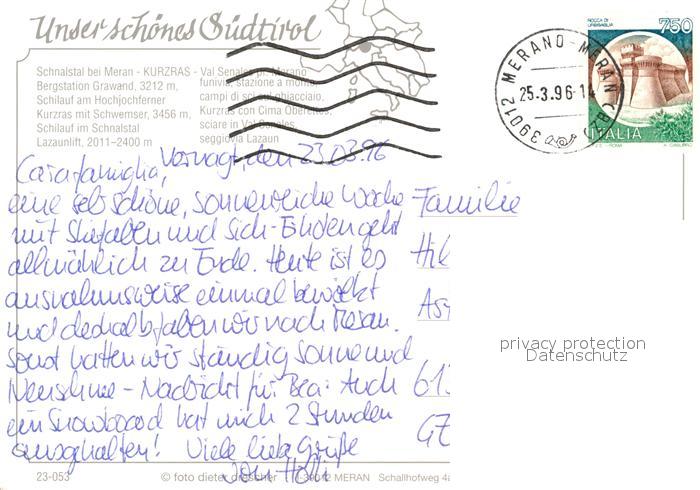 Unser schönes Südtirol
Schnalstal bei Meran - KURZRAS - Val Senales pr. Merano
Bergstation Grawand, 3212 m, funivia, stazione a monte
Schilauf am Hochjochferner campi di sci sul ghiacciaio,
Kurzras mit Schwemser, 3456 m, Kurzras con Cima Oberettes,
Schilauf im Schnalstal sciare in Val Senales
Lazaunlift, 2011–2400 m seggiovia Lazaun
ROCCA DI URBISAGLIA
750
ITALIA
39012 MERANO - MERAN
25-3.96-14
Vernagt, den 23.03.96
Cara famiglia,
eine sehr schöne, sonnenreiche Woche
mit Skifahren und Sich-Finden geht
allmählich zu Ende. Heute ist es
ausnahmsweise einmal bewölkt
und deshalb fahren wir nach Meran.
Sonst hatten wir ständig Sonne und
Neuschnee - Nachricht für Bea: Auch
ein Snowboard hat mich 2 Stunden
ausgehalten! Viele liebe Grüße
von Holli
Familie
Hil
As
613
privacy protection
Datenschutz
23-053
© foto dieter drescher I-39012 MERAN Schallhofweg 4a